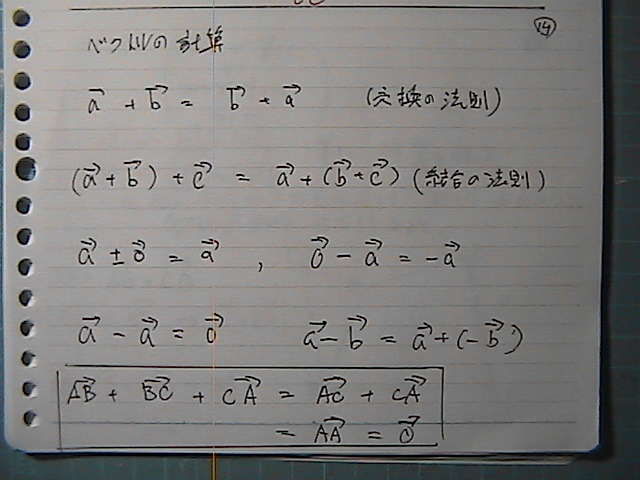 ⑭
ベクトルの計算
a⃗ + b⃗ = b⃗ + a⃗ (交換の法則)
(a⃗ + b⃗) + c⃗ = a⃗ + (b⃗ + c⃗) (結合の法則)
a⃗ ± 0⃗ = a⃗ , 0⃗ − a⃗ = −a⃗
a⃗ − a⃗ = 0⃗ a⃗ − b⃗ = a⃗ + (−b⃗)
AB⃗ + BC⃗ + CA⃗ = AC⃗ + CA⃗
= AA⃗ = 0⃗